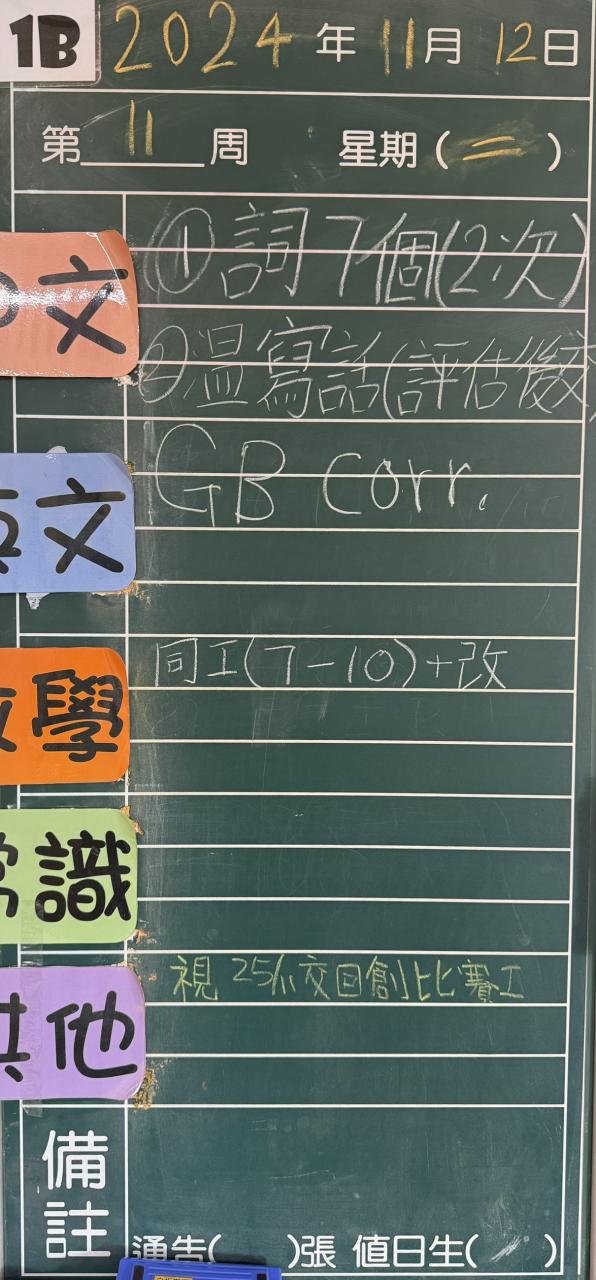 1B 2024年11月12日
第11周 星期(二)
文 ①詞7個(2次)
②温寫話(評估後交)
文 GB Corr.
學 同工(7-10)+改
常識
視 25/11交回創比賽工
其他
備註 通告( )張 值日生( )